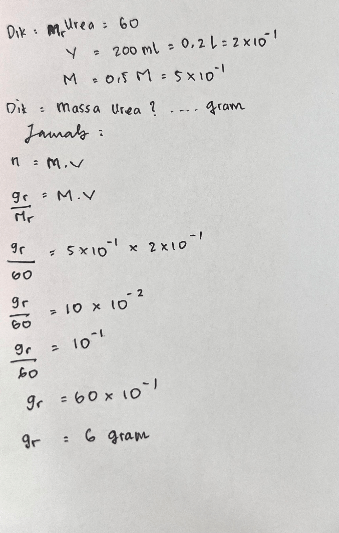 Dik : Mr Urea = 60
V = 200 ml = 0,2 L = 2 x 10⁻¹
M = 0,5 M = 5 x 10⁻¹
Dit = Massa Urea ? .... gram
Jawab :
n = M.V
gr/Mr = M.V
gr/60 = 5 x 10⁻¹ x 2 x 10⁻¹
gr/60 = 10 x 10⁻²
gr/60 = 10⁻¹
gr = 60 x 10⁻¹
gr = 6 gram